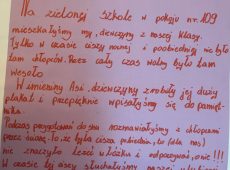 Na zielonej szkole w pokoju nr. 109
mieszkałyśmy my, dziewczyny z naszej klasy.
Tylko w czasie ciszy nocnej i poobiedniej nie było
tam chłopców. Przez cały czas wolny było tam
wesoło.
W imieniny Asi, dziewczyny zrobiły jej duży
plakat i przepięknie wpisałyśmy się do pamięt-
nika.
Podczas przygotowań do snu rozmawiałyśmy z chłopcami
przez ścianę. To, że była cisza pobiednia, (dla nas)
nie znaczyło leżeć w łóżku i odpoczywać, o nie!!!
W czasie tej ciszy słuchałyśmy